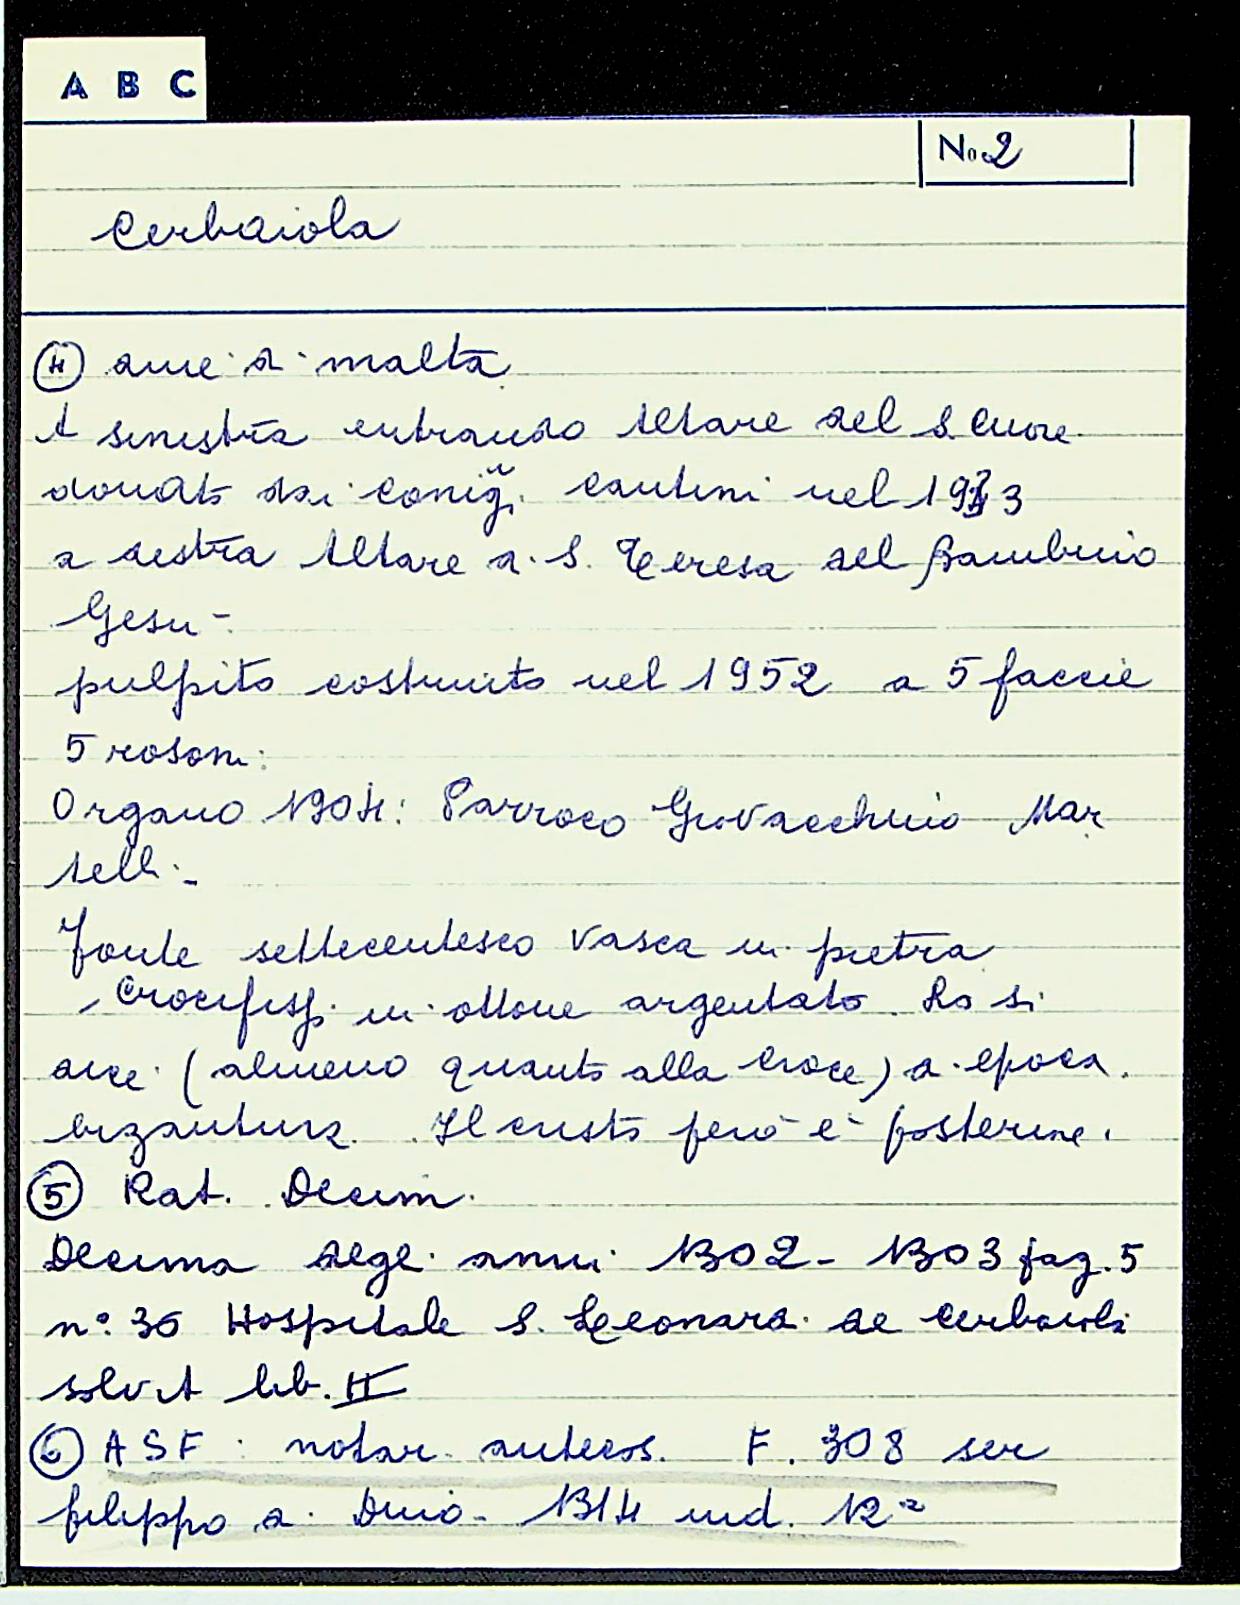 A B C
No. 2
Cerbaiola
④ ave di malta
A sinistra entrando Altare del S. Cuore
donato dai coniug. Cantini nel 1933
a destra Altare a S. Teresa del Bambino
Gesu -
pulpito costruito nel 1952 a 5 faccie
5 rosoni
Organo 1904: Parroco Giovacchino Mar
selli -
Fonte settecentesco vasca in pietra
Crocifisso in ottone argentato. Lo si
dice (almeno quanto alla croce) di epoca
bizantina. Il cristo però è posteriore.
⑤ Rat. Decim.
Decima degli anni 1302 - 1303 pag. 5
n° 36 Hospitale S. Leonardi de Cerbaiola
solvit lib. II
⑥ ASF: notar. antecos. F. 308 ser
filippo di Dino - 1314 ind. 12ª